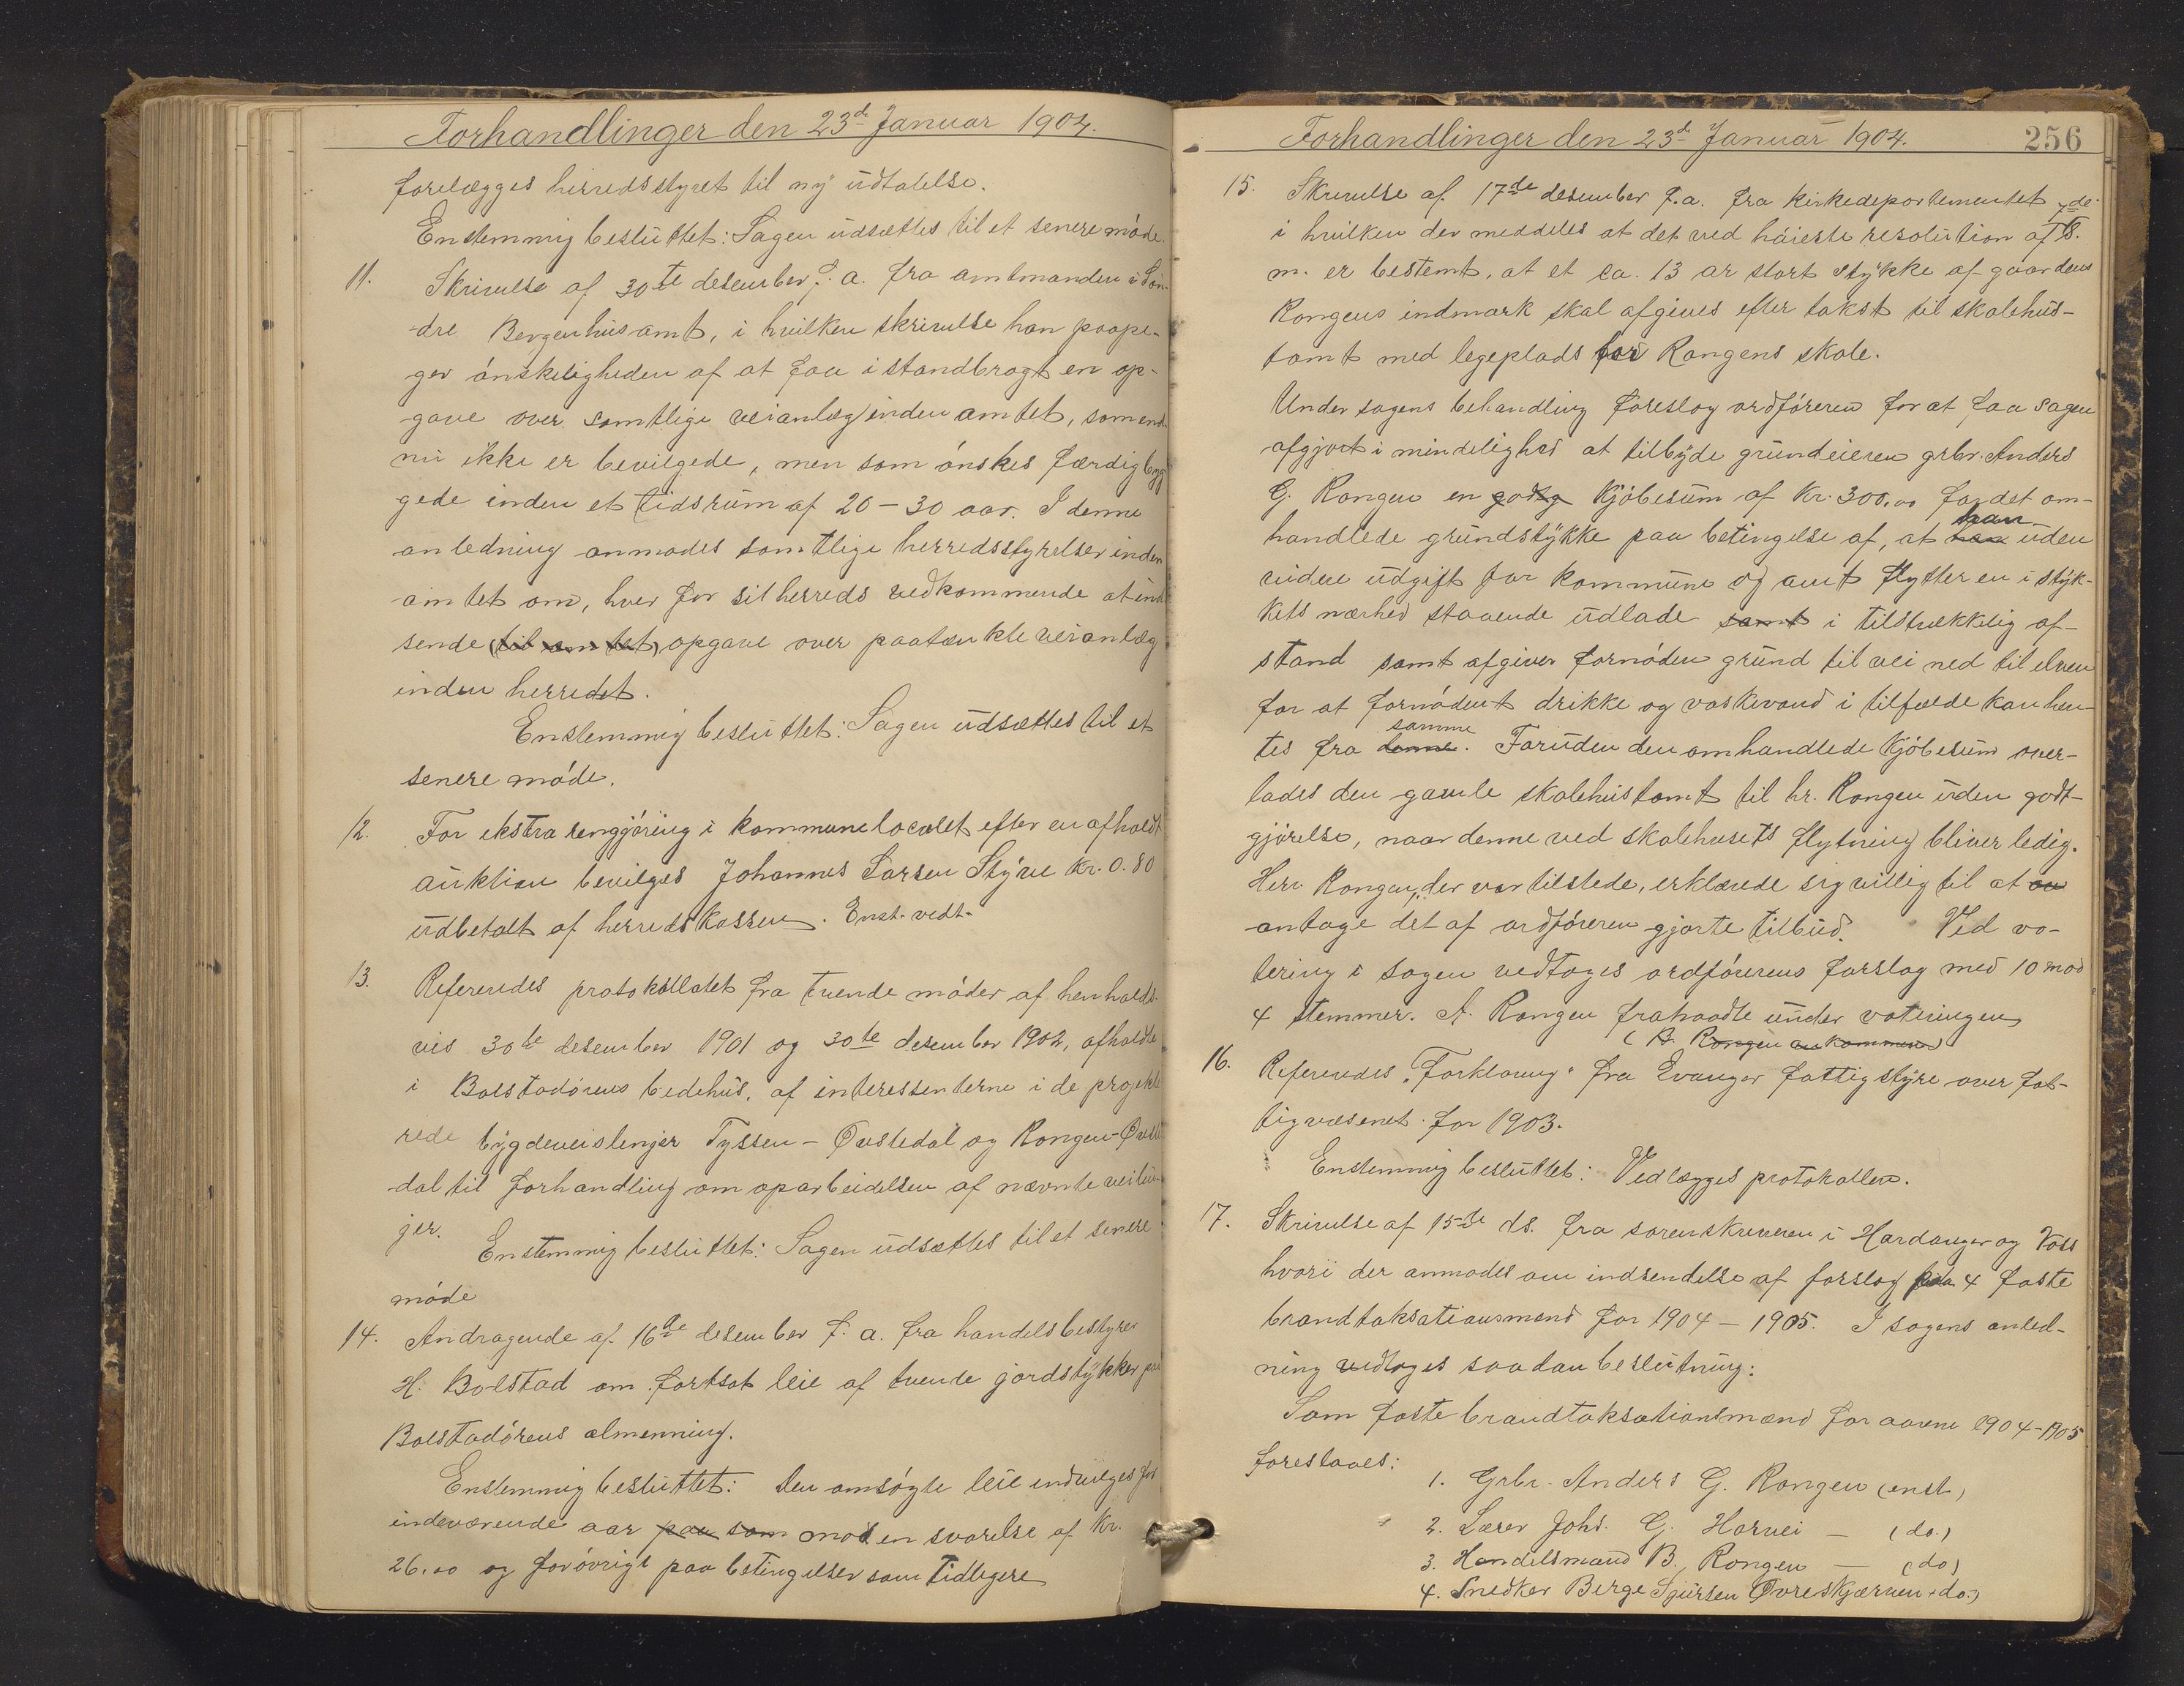 Forhandlinger den 23d Januar 1904.
forelægges herredsstyret til ny udtalelse.
Enstemmig besluttet: Sagen udsættes til et senere møde.
11. Skrivelse af 30te desember f. a. fra amtmanden i Søn-
dre Bergenhus amt, i hvilken skrivelse han paape-
ger ønskeligheden af at faa istandbragt en op-
gave over samtlige veianlæg inden amtet, som end-
nu ikke er bevilgede, men som ønskes færdigbyg
gede inden et tidsrum af 20-30 aar. I denne
anledning anmodes samtlige herredsstyrelser inden
amtet om, hver for sit herreds vedkommende at ind
sende (til amtet) opgave over paatænkte veianlæg
inden herredet.
Enstemmig besluttet: Sagen udsættes til et
senere møde.
12. For ekstra rengjøring i kommunelocalet efter en afholdt
auktion bevilges Johannes Larsen Styve Kr. 0.80
udbetalt af herredskassen. Enst. vedt.
13. Refereredes protokollatet fra tvende møder af henholds-
vis 30te desember 1901 og 30te desember 1902, afholdte
i Bolstadørens bedehus, af interessenterne i de projekte
rede bygdeveislinjer Tyssen - Øvstedal og Rongen-Øvste
dal til forhandling om oparbeidelsen af nævnte veilin-
jer.
Enstemmig besluttet: Sagen udsættes til et senere
møde
14. Andragende af 16de desember f. a. fra handelsbestyrer
H. Bolstad om fortsat leie af tvende jordstykker paa
Bolstadørens almenning.
Enstemmig besluttet: Den ansøgte leie indvilges for
indeværende aar paa som mod en svarelse af Kr.
26.00 og forøvrigt paa betingelser som tidligere
Forhandlinger den 23d Januar 1904.
256
15. Skrivelse af 17de desember f.a. fra kirkedepartementet
i hvilken der meddeles at det ved høieste resolution af 7de s.
m. er bestemt, at et ca. 13 ar stort stykke af gaardens
Rongens indmark skal afgives efter takst til skolehus-
tomt med legeplads for Rongens skole.
Under sagens behandling foreslog ordføreren for at faa sagen
afgjort i mindelighed at tilbyde grundeieren grbr. Anders
G. Rongen en godtg Kjøbesum af Kr. 300.00 for det om-
handlede grundstykke paa betingelse af, at han uden
han
videre udgift for kommune og amt flytter en i styk-
kets nærhed staaende udlade samt i tilstrækkelig af-
stand samt afgiver fornøden grund til vei ned til elven
for at fornødent drikke og vaskevand i tilfælde kan hen-
samme
tes fra denne. Foruden den omhandlede Kjøbesum over-
lades den gamle skolehustomt til hr. Rongen uden godt-
gjørelse, naar denne ved skolehusets flytning bliver ledig.
Herr Rongen, der var tilstede, erklærede sig villig til at an
antage det af ordføreren gjorte tilbud. Ved vo-
tering i sagen vedtoges ordførerens forslag med 10 mod
4 stemmer. A. Rongen frahaadte under voteringen
(B. Rongen ankommen)
16. Refereredes "Forklaring" fra Evanger fattigstyre over fat-
tigvæsenet for 1903.
Enstemmig besluttet: Vedlægges protokollen.
17. Skrivelse af 15de ds. fra sorenskriveren i Hardanger og Voss
hvori der anmodes om indsendelse af forslag paa 4 faste
brandtaksationsmænd for 1904 - 1905. I sagens anled-
ning vedtoges saadan beslutning:
Som faste brandtaksationsmænd for aarene 1904-1905
foreslaaes:
1. Grbr. Anders G. Rongen (enst)
2. Lærer Johs. G. Horvei - (do.)
3. Handelsmand B. Rongen - (do)
4. Snedker Berge Sjursen Øvreskjærven (do.)